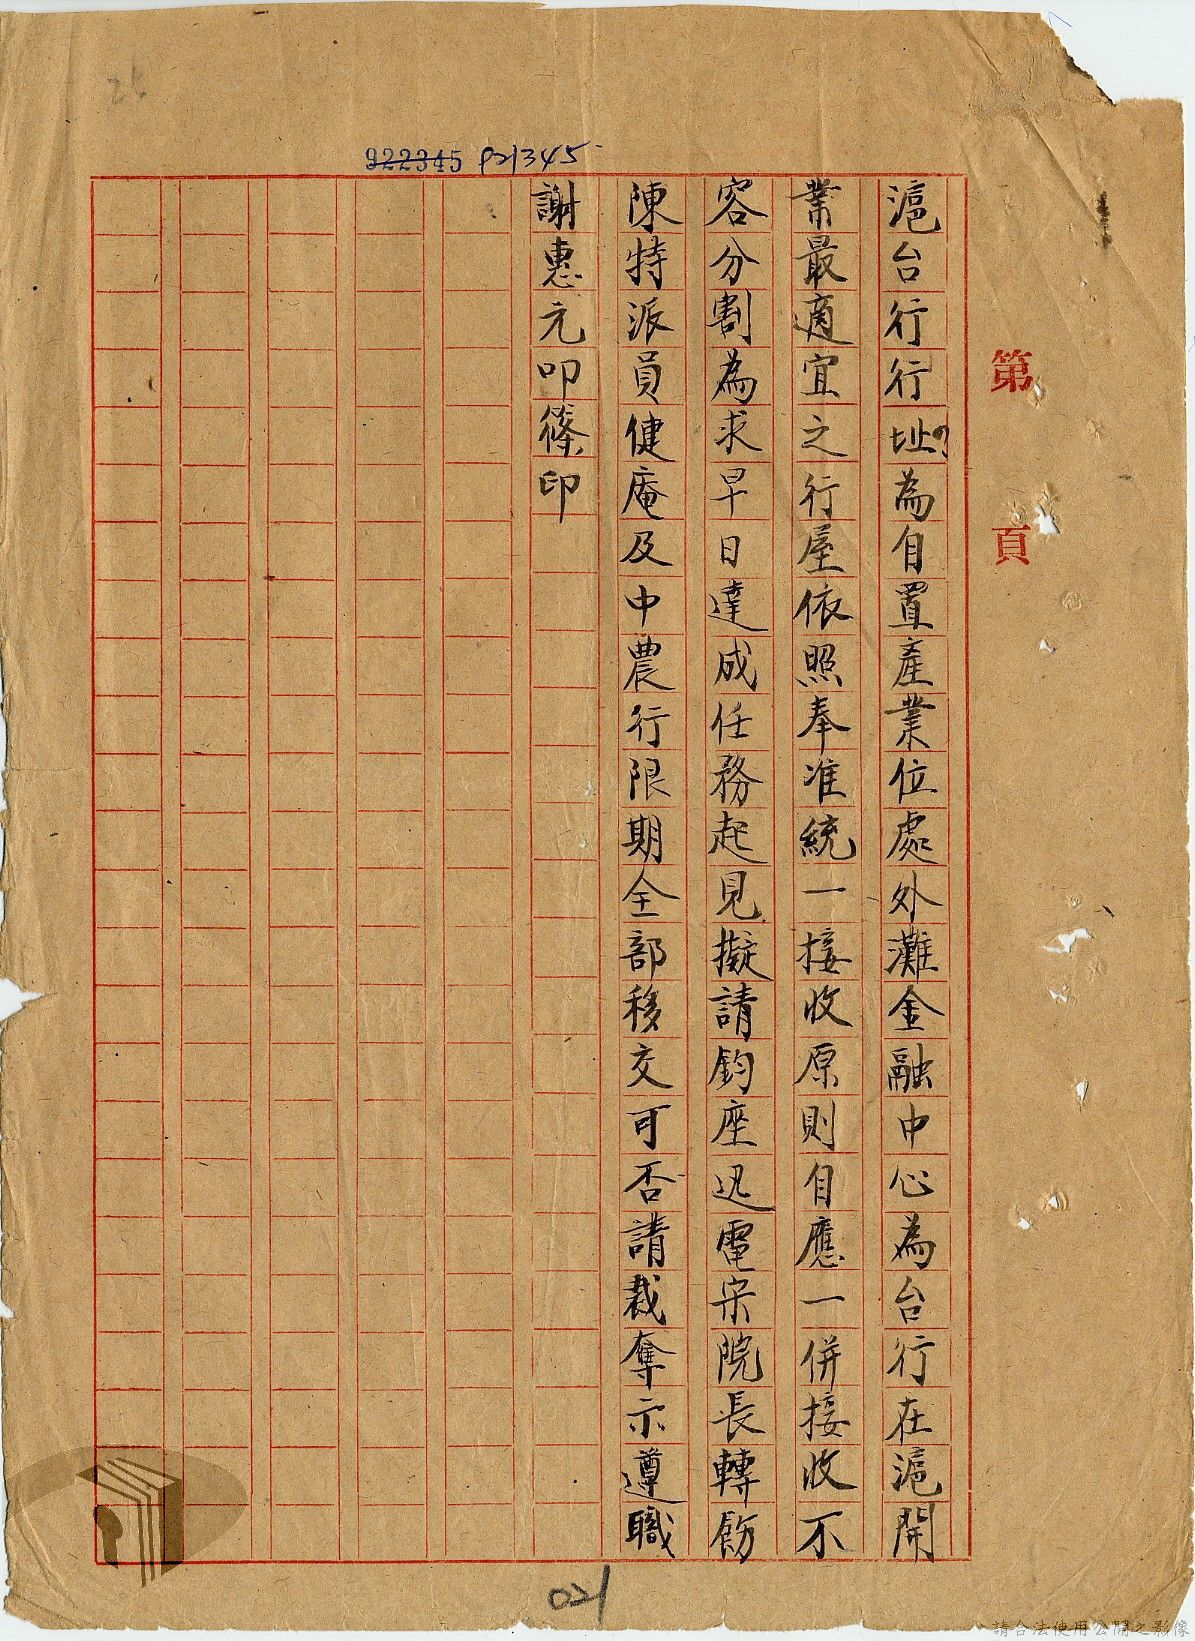 26
922345 P21345
第 頁
滬台行行址?為自置產業位處外灘金融中心為台行在滬開
業最適宜之行屋依照奉准統一接收原則自應一併接收不
容分割為求早日達成任務起見擬請鈞座迅電宋院長轉飭
陳特派員健庵及中農行限期全部移交可否請裁奪示遵職
謝惠元叩篠印
021
請合法使用公開之影像